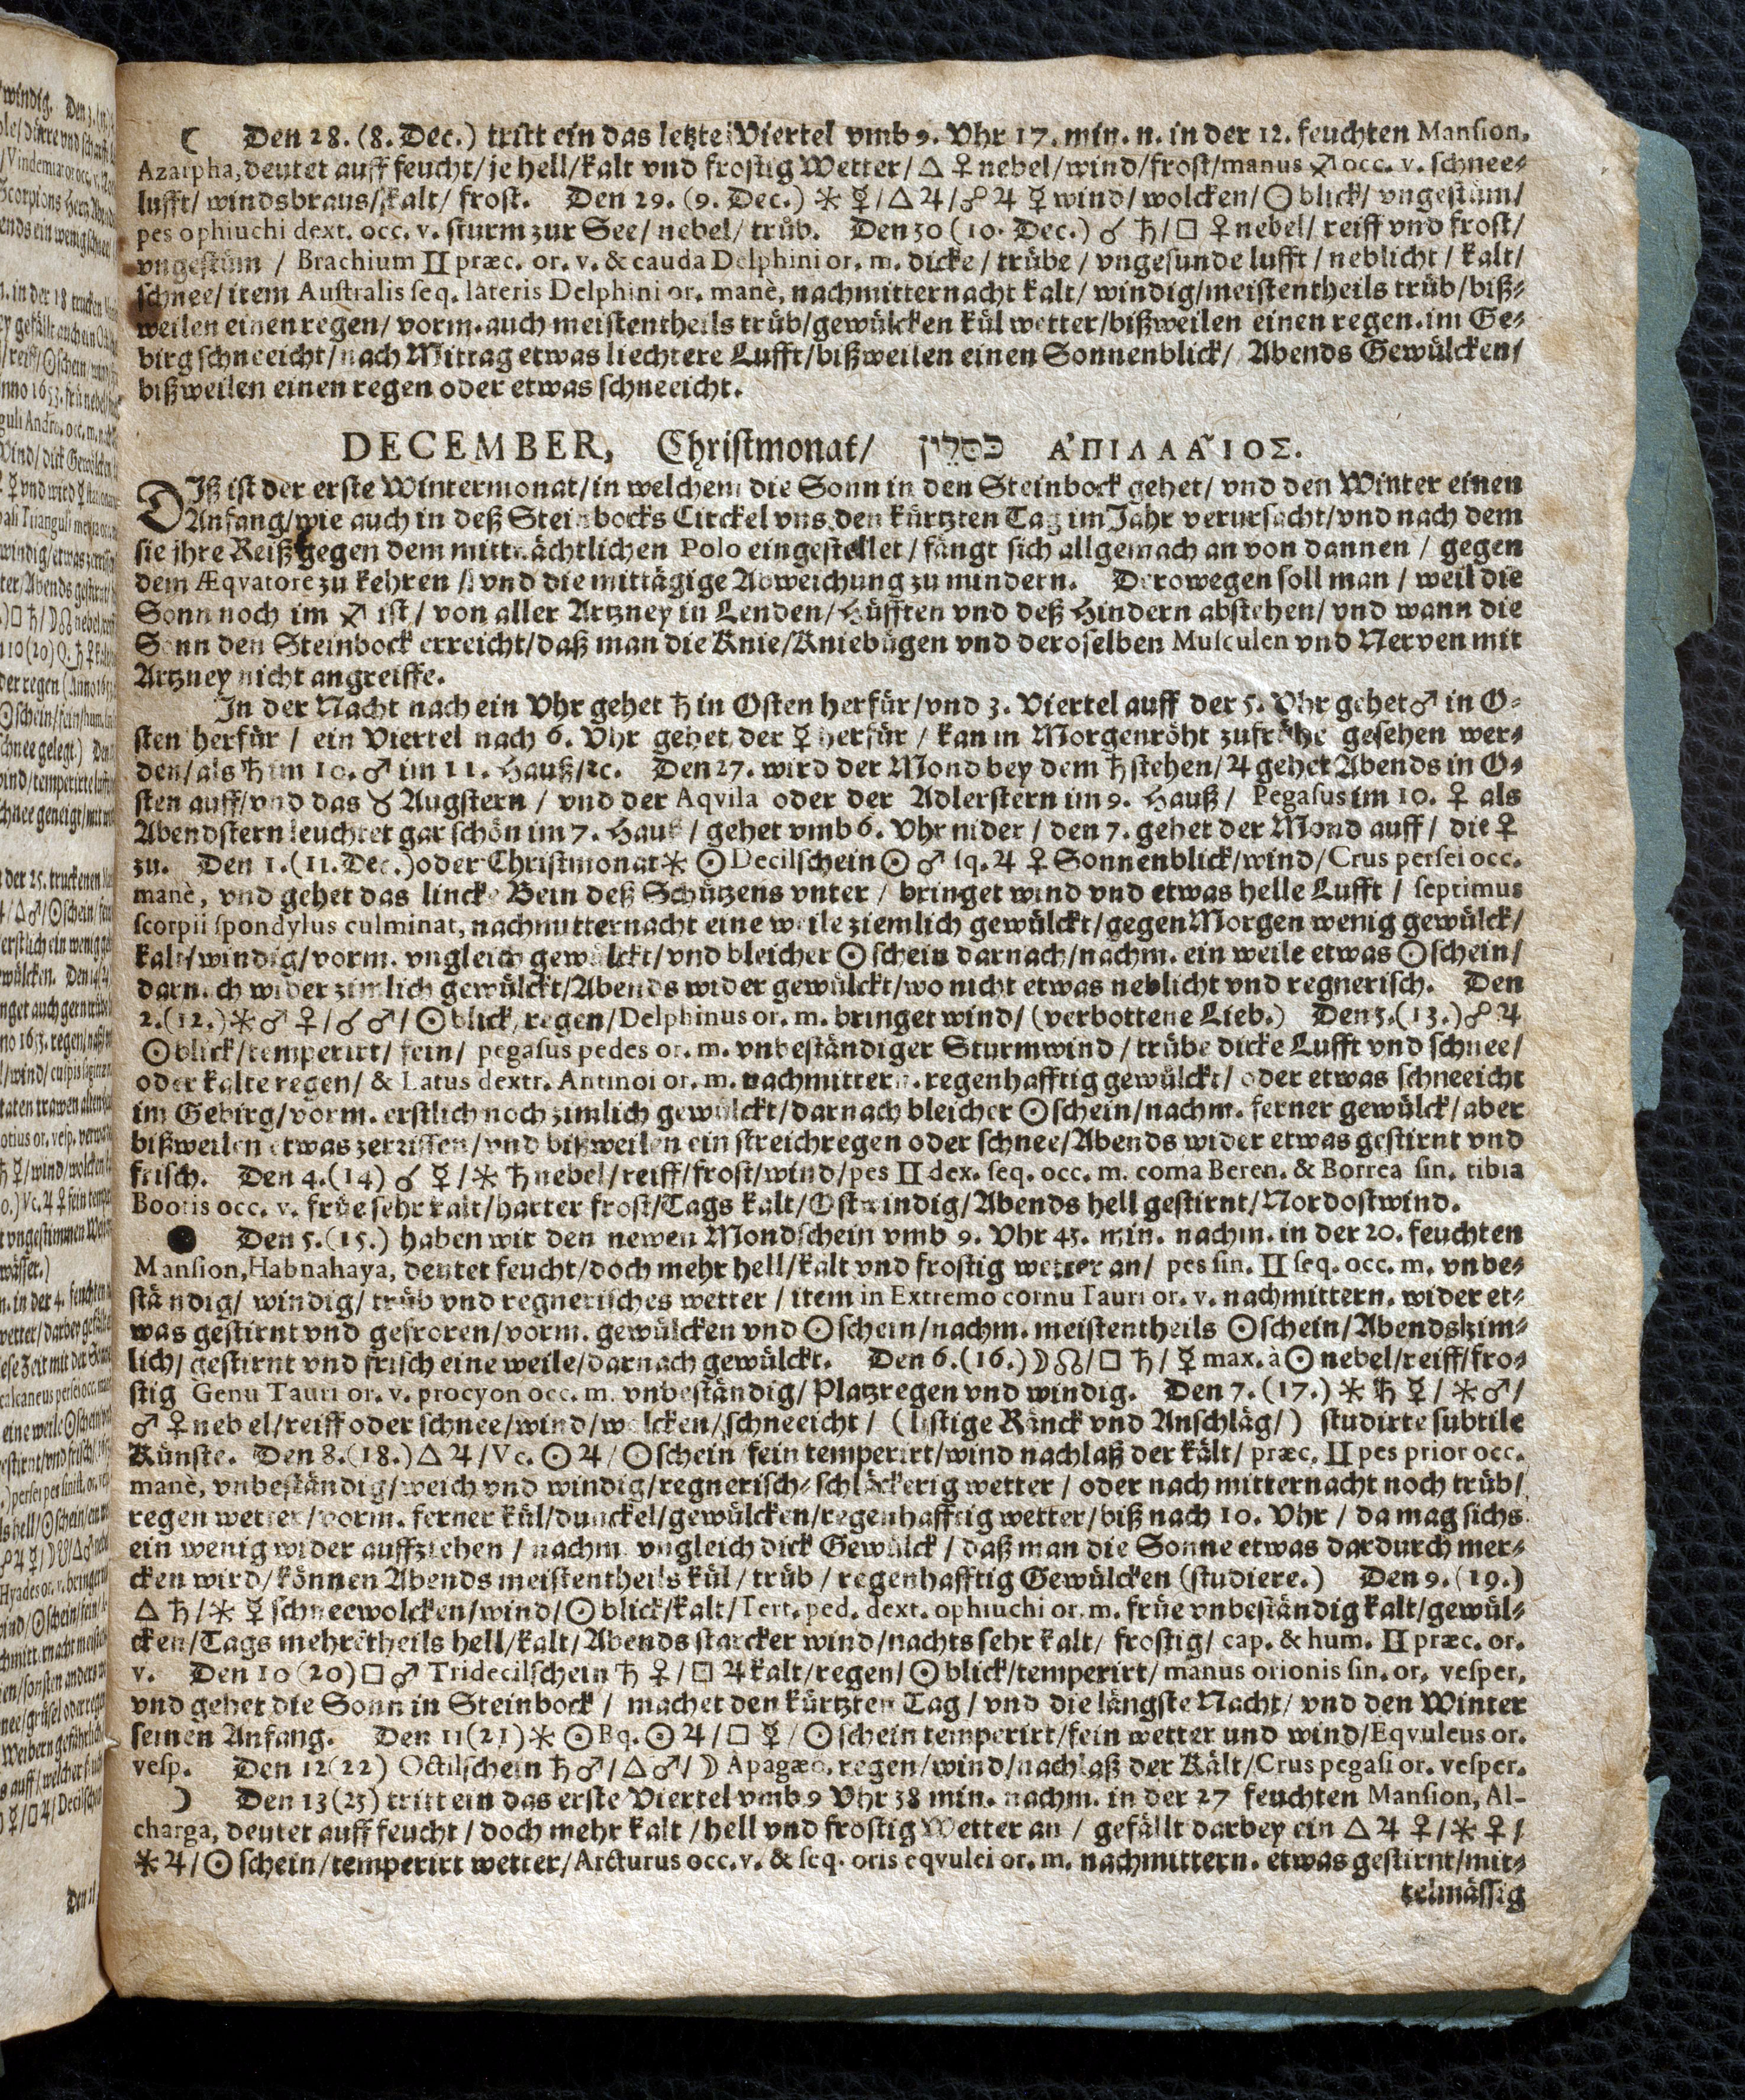 ☾ Den 28. (8. Dec.) tritt ein das letzte Viertel vmb 9. Vhr 17. min. n. in der 12. feuchten Manſion,
Azarpha, deutet auff feucht/je hell/kalt vnd froſtig Wetter/△ ♀ nebel/wind/froſt/manus ♐ occ. v. ſchnee⸗
lufft/ windsbraus/kalt/ froſt. Den 29. (9. Dec.) ⚹ ☿/△ ♃/☍ ♃ ☿ wind/ wolcken/☉ blick/ vngeſtüm/
pes ophiuchi dext. occ. v. ſturm zur See/ nebel/ trüb. Den 30 (10. Dec.) ☌ ♄/□ ♀ nebel/ reiff vnd froſt/
vngeſtüm / Brachium II præc. or. v. & cauda Delphini or. m. dicke / trübe / vngeſunde lufft / neblicht / kalt/
ſchnee/ item Auſtralis ſeq. lateris Delphini or. manè, nachmitternacht kalt/ windig/meiſtentheils trüb/biß⸗
weilen einen regen/ vorm. auch meiſtentheils trüb/gewülcken kül wetter/bißweilen einen regen. im Ge⸗
birg ſchneeicht/nach Mittag etwas liechtere Lufft/bißweilen einen Sonnenblick/ Abends Gewülcken/
bißweilen einen regen oder etwas ſchneeicht.
DECEMBER, Chriſtmonat/ כסלין ἈΠΙΛΛΑΙΟΣ.
DIß iſt der erſte Wintermonat/in welchem die Sonn in den Steinbock gehet/ vnd den Winter einen
Anfang/wie auch in deß Steinbocks Circkel vns den kürtzten Tag im Jahr verurſacht/vnd nach dem
ſie ihre Reiß gegen dem mittnächtlichen Polo eingeſtellet / fängt ſich allgemach an von dannen / gegen
dem Æqvatore zu kehren / vnd die mittägige Abweichung zu mindern. Derowegen ſoll man / weil die
Sonn noch im ♐ iſt/ von aller Artzney in Lenden/Hüfften vnd deß Hindern abſtehen/ vnd wann die
Sonn den Steinbock erreicht/daß man die Knie/Kniebügen vnd deroſelben Muſculen vnd Nerven mit
Artzney nicht angreiffe.
In der Nacht nach ein Vhr gehet ♄ in Oſten herfür/vnd 3. Viertel auff der 5. Vhr gehet ♂ in O⸗
ſten herfür / ein Viertel nach 6. Vhr gehet der ☿ herfür / kan in Morgenröht zufrühe geſehen wer⸗
den/als ♄ im 10. ♂ im 11. Hauß/ꝛc. Den 27. wird der Mond bey dem ♄ ſtehen/♃ gehet Abends in O⸗
ſten auff/vnd das ♉ Augſtern / vnd der Aqvila oder der Adlerſtern im 9. Hauß/ Pegaſus im 10. ♀ als
Abendſtern leuchtet gar ſchön im 7. Hauß / gehet vmb 6. Vhr nider / den 7. gehet der Mond auff / die ♀
zu. Den 1. (11. Dec.) oder Chriſtmonat ⚹ ☉ Decilſchein ☉ ♂ ſq. ♃ ♀ Sonnenblick/wind/Crus perſei occ.
manè, vnd gehet das lincke Bein deß Schützens vnter / bringet wind vnd etwas helle Lufft / ſeptimus
ſcorpii ſpondylus culminat, nachmitternacht eine weile ziemlich gewülckt/gegen Morgen wenig gewülck/
kalt/windig/vorm. vngleich gewülckt/vnd bleicher ☉ ſchein darnach/nachm. ein weile etwas ☉ ſchein/
darnach wider zimlich gewülckt/Abends wider gewülckt/wo nicht etwas neblicht vnd regneriſch. Den
2. (12.) ⚹ ♂ ♀/☌ ♂/☉ blick/regen/Delphinus or. m. bringet wind/ (verbottene Lieb.) Den 3. (13.) ☍ ♃
☉ blick/temperirt/ fein/ pegaſus pedes or. m. vnbeſtändiger Sturmwind / trübe dicke Lufft vnd ſchnee/
oder kalte regen/ & Latus dextr. Antinoi or. m. nachmittern. regenhafftig gewülckt/ oder etwas ſchneeicht
im Gebirg/vorm. erſtlich noch zimlich gewülckt/darnach bleicher ☉ ſchein/nachm. ferner gewülck/aber
bißweilen etwas zerriſſen/vnd bißweilen ein ſtreichregen oder ſchnee/Abends wider etwas geſtirnt vnd
friſch. Den 4. (14) ☌ ☿/⚹ ♄ nebel/reiff/froſt/wind/pes II dex. ſeq. occ. m. coma Beren. & Borrea ſin. tibia
Bootis occ. v. früe ſehr kalt/harter froſt/Tags kalt/Oſtwindig/Abends hell geſtirnt/Nordoſtwind.
● Den 5. (15.) haben wir den newen Mondſchein vmb 9. Vhr 45. min. nachm. in der 20. feuchten
Manſion, Habnahaya, deutet feucht/doch mehr hell/kalt vnd froſtig wetter an/ pes ſin. II ſeq. occ. m. vnbe⸗
ſtändig/ windig/ trüb vnd regneriſches wetter / item in Extremo cornu Tauri or. v. nachmittern. wider et⸗
was geſtirnt vnd gefroren/vorm. gewülcken vnd ☉ ſchein/nachm. meiſtentheils ☉ ſchein/Abends zim⸗
lich/ geſtirnt vnd friſch eine weile/darnach gewülckt. Den 6. (16.) ☽ ☊/□ ♄/ ☿ max. à ☉ nebel/reiff/fro⸗
ſtig Genu Tauri or. v. procyon occ. m. vnbeſtändig/ Platzregen vnd windig. Den 7. (17.) ⚹ ♄ ☿/ ⚹ ♂/
♂ ♀ nebel/reiff oder ſchnee/wind/wolcken/ſchneeicht / (liſtige Ränck vnd Anſchläg/) ſtudirte ſubtile
Künſte. Den 8. (18.) △ ♃/Vc. ☉ ♃/☉ ſchein fein temperirt/wind nachlaß der kält/ præc. II pes prior occ.
manè, vnbeſtändig/weich vnd windig/regneriſch⸗ſchläckerig wetter / oder nach mitternacht noch trüb/
regen wetter/vorm. ferner kül/dunckel/gewülcken/regenhafftig wetter/biß nach 10. Vhr / da mag ſichs
ein wenig wider auffziehen / nachm. vngleich dick Gewülck / daß man die Sonne etwas dardurch mer⸗
cken wird/ können Abends meiſtentheils kül / trüb / regenhafftig Gewülcken (ſtudiere.) Den 9. (19.)
△ ♄/⚹ ☿ ſchneewolcken/wind/☉ blick/kalt/Tert. ped. dext. ophiuchi or. m. früe vnbeſtändig kalt/gewül⸗
cken/Tags mehrētheils hell/kalt/Abends ſtarcker wind/nachts ſehr kalt/ froſtig/ cap. & hum. II præc. or.
v. Den 10 (20) □ ♂ Tridecilſchein ♄ ♀/□ ♃ kalt/regen/☉ blick/temperirt/ manus orionis ſin. or. veſper,
vnd gehet die Sonn in Steinbock / machet den kürtzten Tag / vnd die längſte Nacht/ vnd den Winter
ſeinen Anfang. Den 11 (21) ⚹ ☉ Bq. ☉ ♃/□ ☿/☉ ſchein temperirt/fein wetter und wind/Eqvuleus or.
veſp. Den 12 (22) Octilſchein ♄ ♂/△ ♂/☽ Apagæo, regen/wind/nachlaß der Kält/Crus pegaſi or. veſper.
☽ Den 13 (23) tritt ein das erſte Viertel vmb 9 Vhr 38 min. nachm. in der 27 feuchten Manſion, Al-
charga, deutet auff feucht / doch mehr kalt / hell vnd froſtig Wetter an / gefällt darbey ein △ ♃ ♀/⚹ ♀/
⚹ ♃/☉ ſchein/temperirt wetter/Arcturus occ. v. & ſeq. oris eqvulei or. m. nachmittern. etwas geſtirnt/mit⸗
telmäſſig